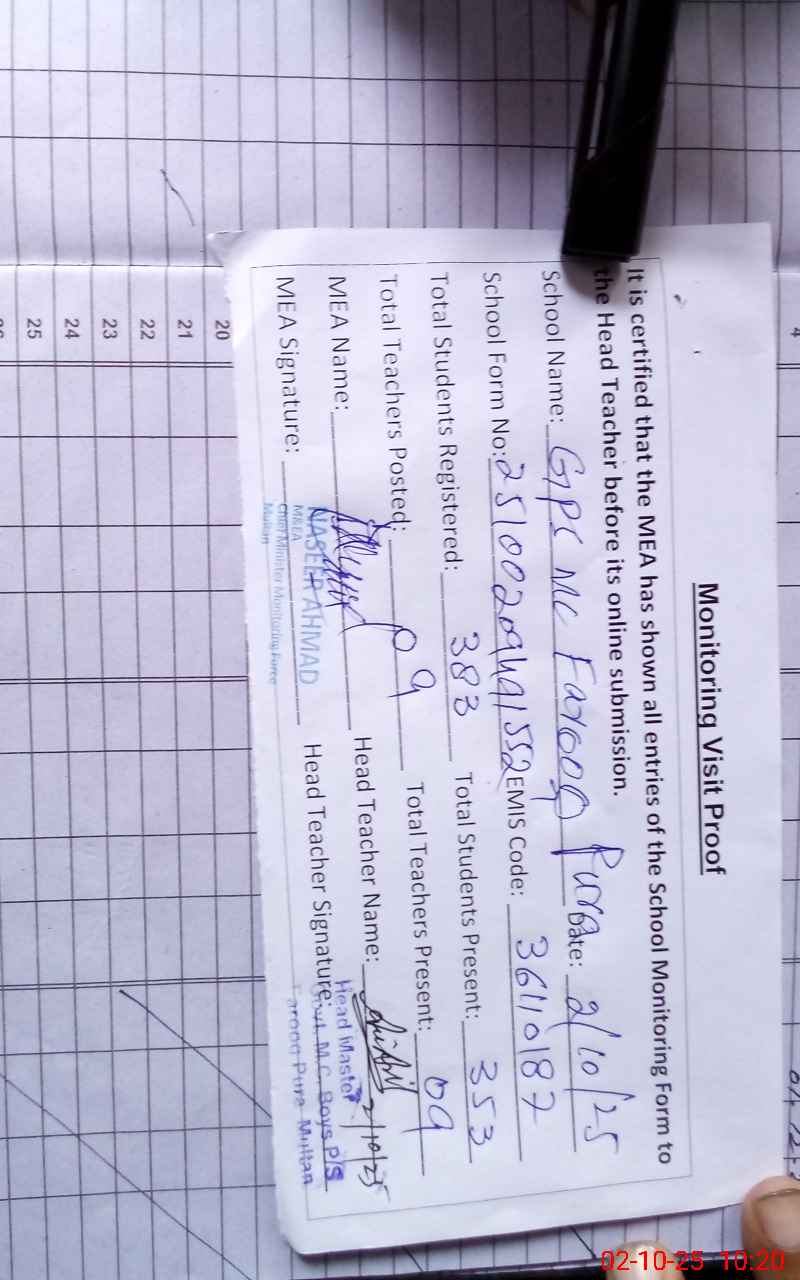 Monitoring Visit Proof
It is certified that the MEA has shown all entries of the School Monitoring Form to
the Head Teacher before its online submission.
School Name: GPS MC Farooq Pura Date: 2/10/25
School Form No: EMIS Code: 36110187
Total Students Registered: 383 Total Students Present: 353
Total Teachers Posted: 09 Total Teachers Present: 09
MEA Name: Head Teacher Name: 2/10/25
NASEER AHMAD
M&EA
Chief Minister Monitoring Force
Multan
MEA Signature: Head Teacher Signature:
Head Master
Govt. M.C. Boys P/S
Farooq Pura Multan
20
21
22
23
24
25
02-10-25 10:20